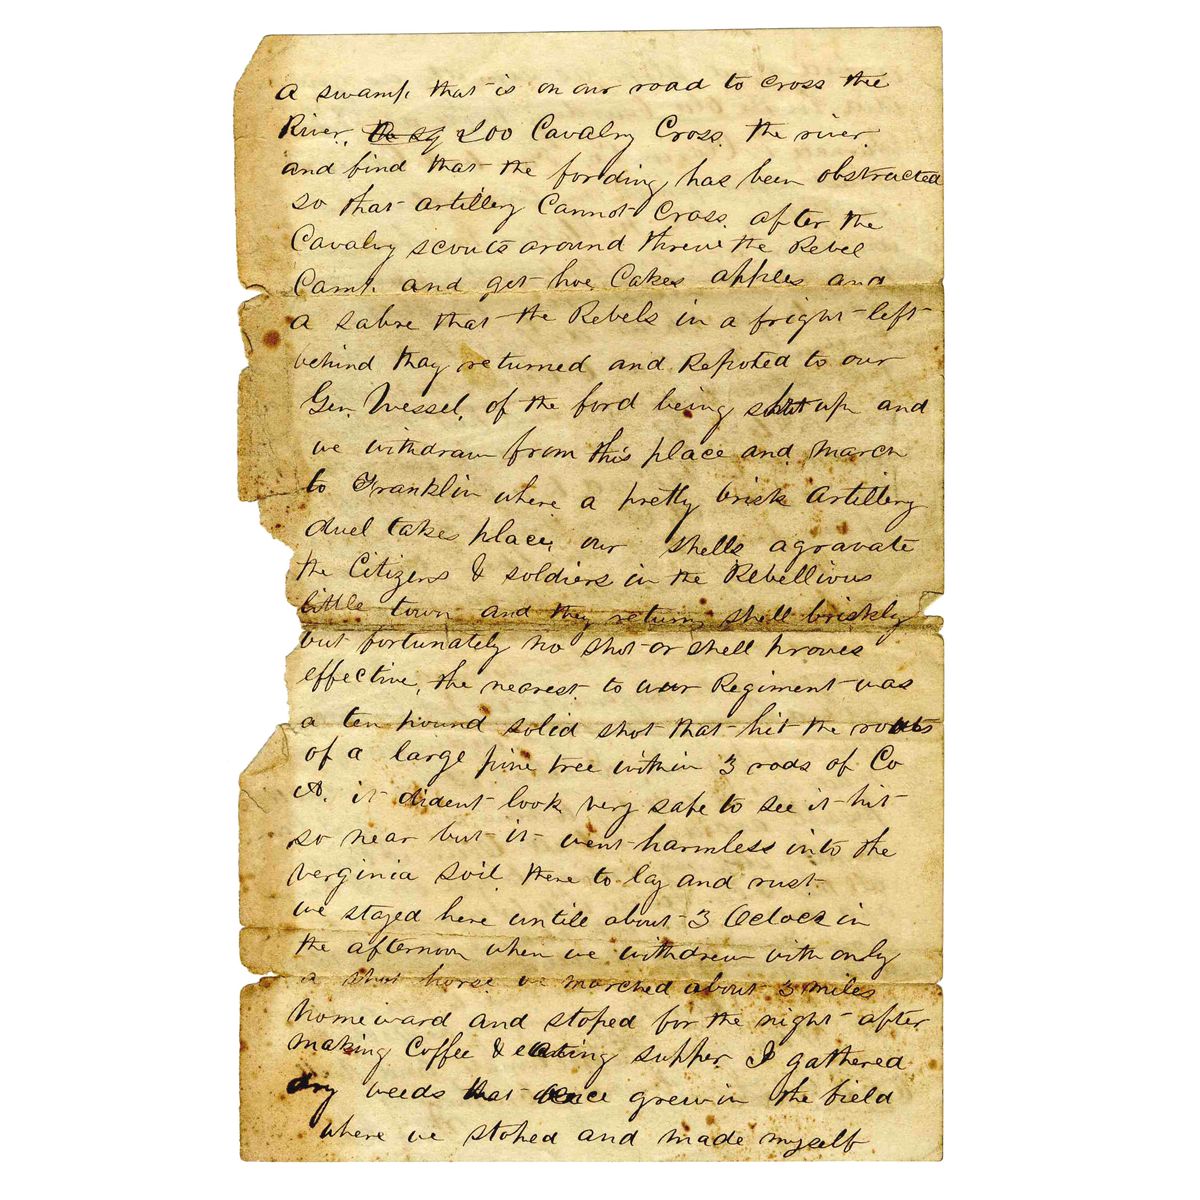 a swamp that is on our road to cross the
River. the sq 200 Cavalry Cross the river
and find that the fording has been obstructed
so that artillery Cannot Cross. after the
Cavalry scouts around threw the Rebel
Camp and get hoe Cakes apples and
a sabre that the Rebels in a fright left
behind thay returned and Repoted to our
Gen. Wessel, of the ford being shut up and
we withdraw from this place and march
to Franklin where a pretty brisk artillery
duel takes place, our shells agravate
the Citizens & soldiers in the Rebellious
little town and they return shell briskly
but fortunately no shot or shell proves
effective, the nearest to our Regiment was
a ten pound solid shot that hit the roots
of a large pine tree within 3 rods of Co
A. it dident look very safe to see it hit
so near but it went harmless into the
verginia soil there to lay and rust.
we stayed here untill about 3 Oclock in
the afternoon when we withdrew with only
a shot horse we marched about 3 miles
homeward and stoped for the night after
making Coffee & eating supper I gathered
dry weeds that grew in the field
where we stoped and made myself